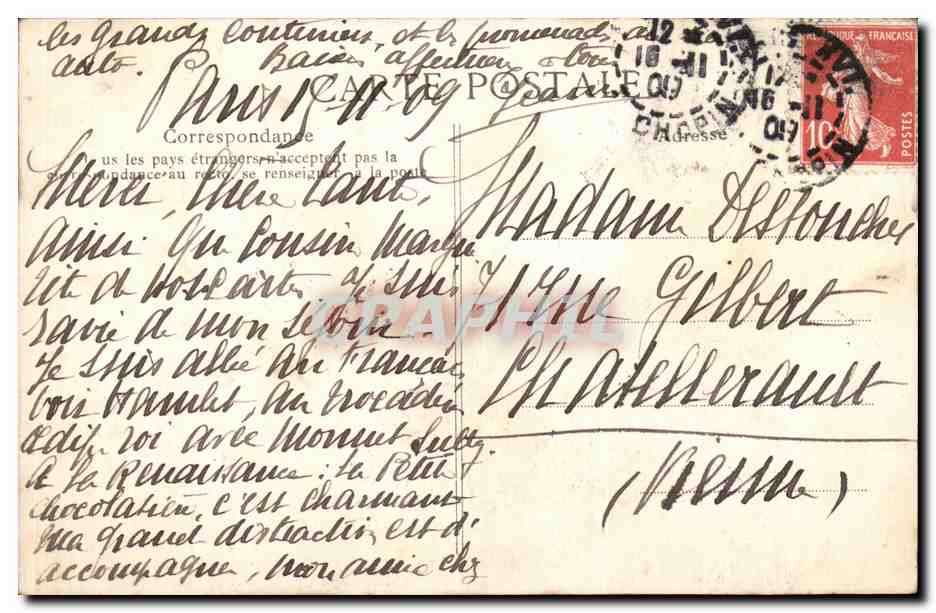 les grands couturiers, et les promenades en
auto. Baisers affectueux à tous
Jeanne
CARTE POSTALE
Paris 15-11-09
Correspondance
us les pays étrangers n'acceptent pas la
correspondance au recto, se renseigner à la poste
Adresse
RÉPUBLIQUE FRANÇAISE
10
POSTES
12
16 -11
09
CHOPIN
Merci, chère tante,
ainsi qu cousin Margue
rite de vos cartes. Je suis
ravie de mon séjour
Je suis allée au Français
voir Hamlet, au Trocadéro
Œdipe roi avec Mounet Sully
À la Renaissance : la Petite
chocolatière, c'est charmant
Ma grande distraction est d'
accompagner, mon amie chez
Madame Destouches
71 rue Gilbert
Chatellerault
(Vienne)
CPAPHIL